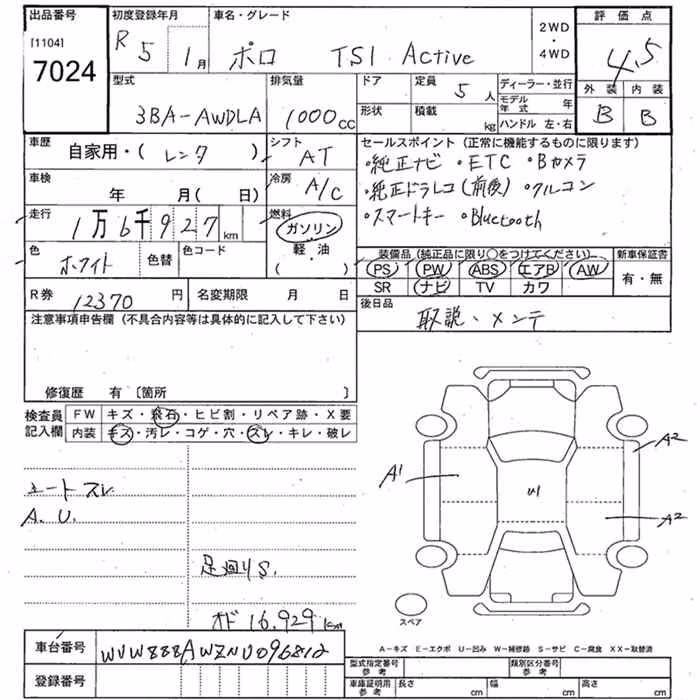 出品番号 初度登録年月 車名・グレード 2WD・4WD 評価点
[1104] R 5 1月 ポロ TSI Active 4.5
7024 外装 内装
B B
型式 排気量 ドア 定員 5人 ディーラー・並行
3BA-AWDLA 1000cc 形状 積載 kg モデル年式 年
ハンドル 左・右
車歴 自家用・( レンタ ) シフト AT セールスポイント(正常に機能するものに限ります)
車検 年 月( 日) 冷房 A/C ・純正ナビ ・ETC ・Bカメラ
・純正ドラレコ(前後) ・クルコン
走行 1万6千927km 燃料 ガソリン ・スマートキー ・Bluetooth
軽・油
色 ホワイト 色替 色コード 装備品(純正品に限り○をつけてください) 新車保証書
PS PW ABS エアB AW 有・無
SR ナビ TV カワ
R券 12370円 名変期限 月 日 後日品
取説・メンテ
注意事項申告欄(不具合内容等は具体的に記入して下さい)
修復歴 有〔箇所 〕
検査員記入欄 FW キズ・飛石・ヒビ割・リペア跡・X要
内装 キズ・汚レ・コゲ・穴・スレ・キレ・破レ
A1 A2
A2
シートスレ
A.U.
足廻りS.
オド 16,929km
スペア
A-キズ E-エクボ U-凹み W-補修跡 S-サビ C-腐食 XX-取替済
車台番号 WVWZZZAWZNU096812
登録番号
型式指定番号 参考 類別区分番号 参考
車庫証明用 参考 長さ cm 幅 cm 高さ cm